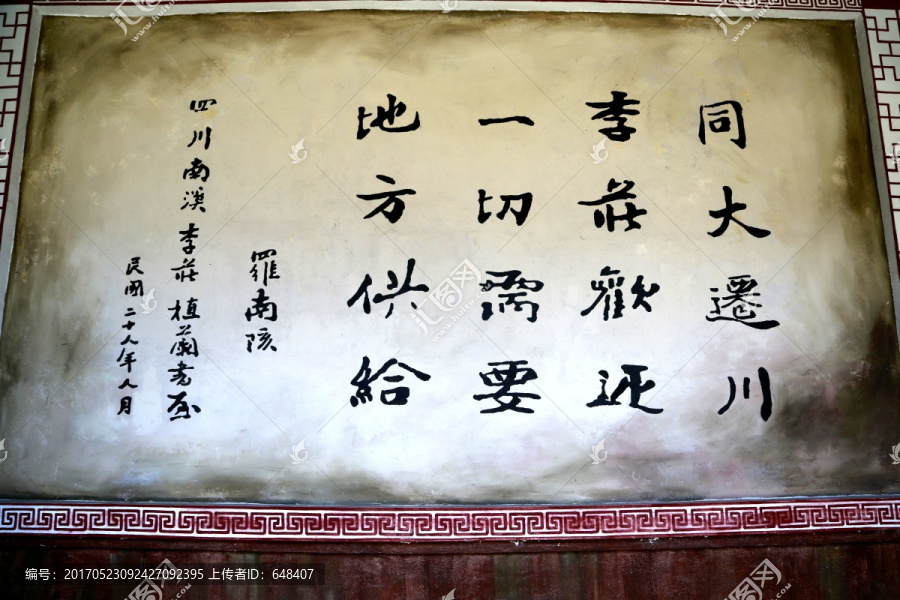 同大遷川
李莊歡迎
一切需要
地方供給
羅南陔
四川南溪李莊植蘭書屋
民國二十八年八月
编号：20170523092427092395 上传者ID：648407